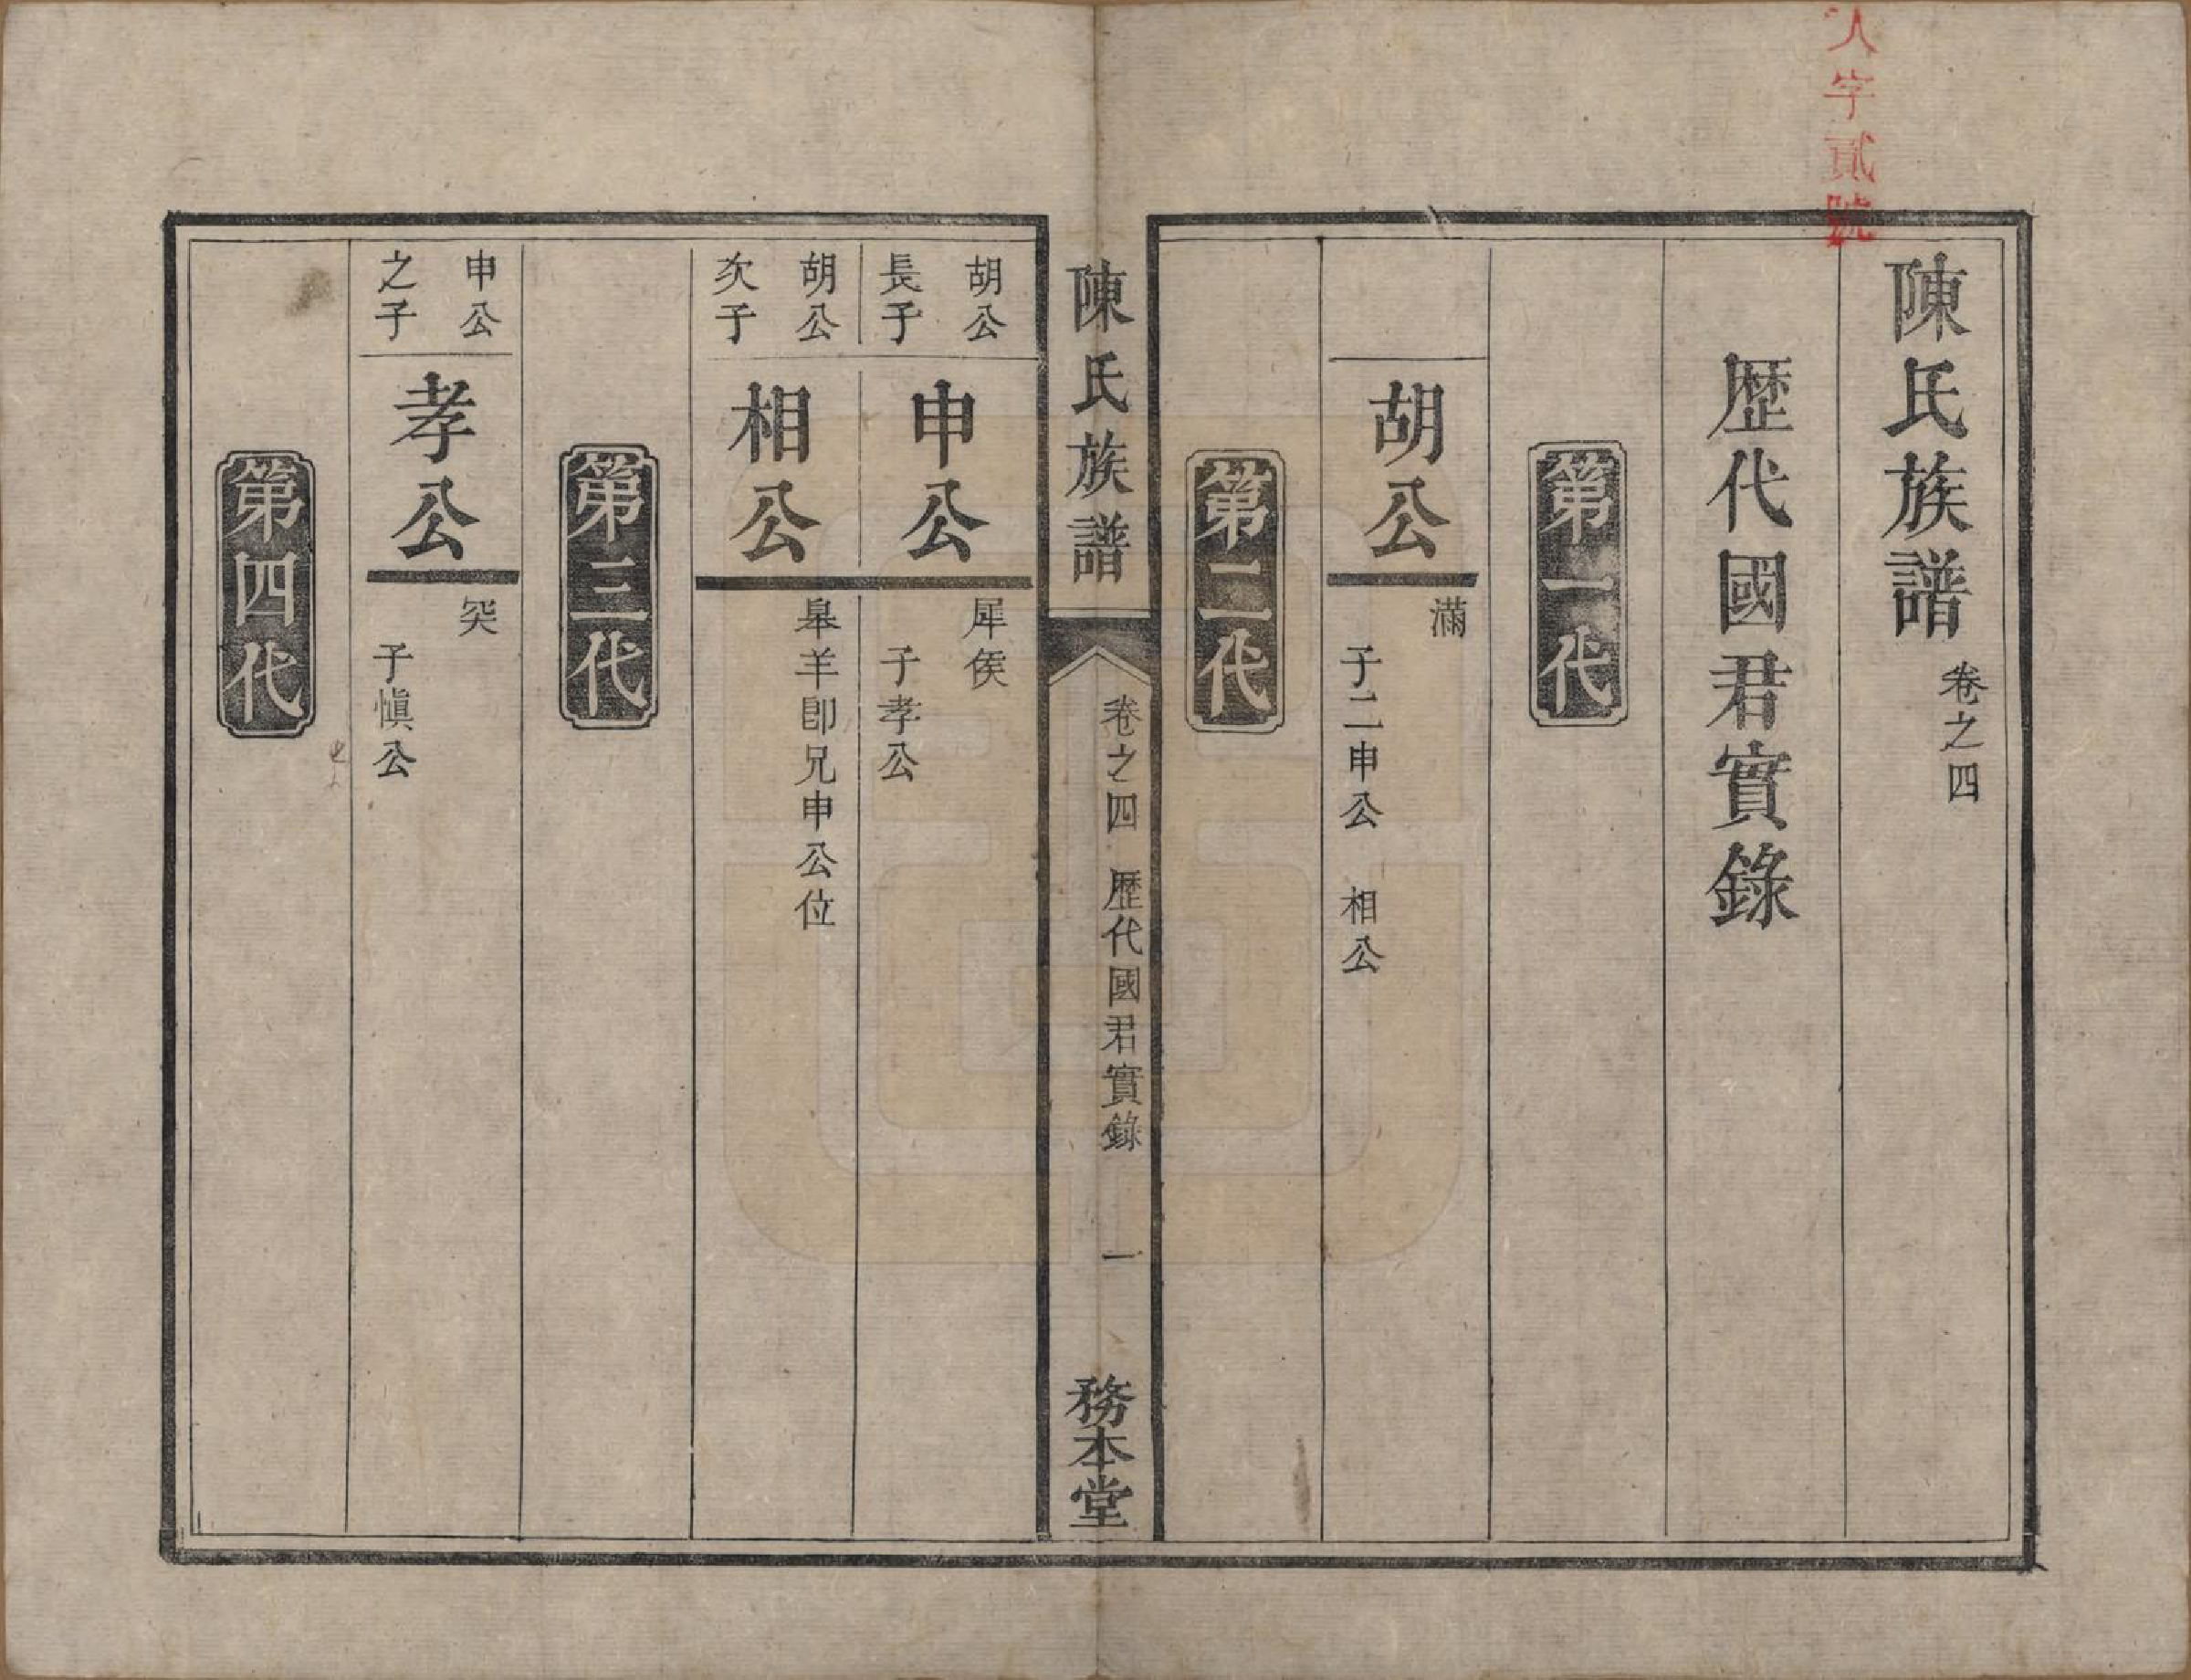 人字貳號
陳氏族譜 卷之四
歷代國君實錄
第一代
胡公
滿
子二申公 相公
第二代
陳氏族譜 卷之四 歷代國君實錄 一 務本堂
胡公
長子
申公
犀侯
子孝公
胡公
次子
相公
臯羊卽兄申公位
第三代
申公
之子
孝公
突
子愼公
第四代